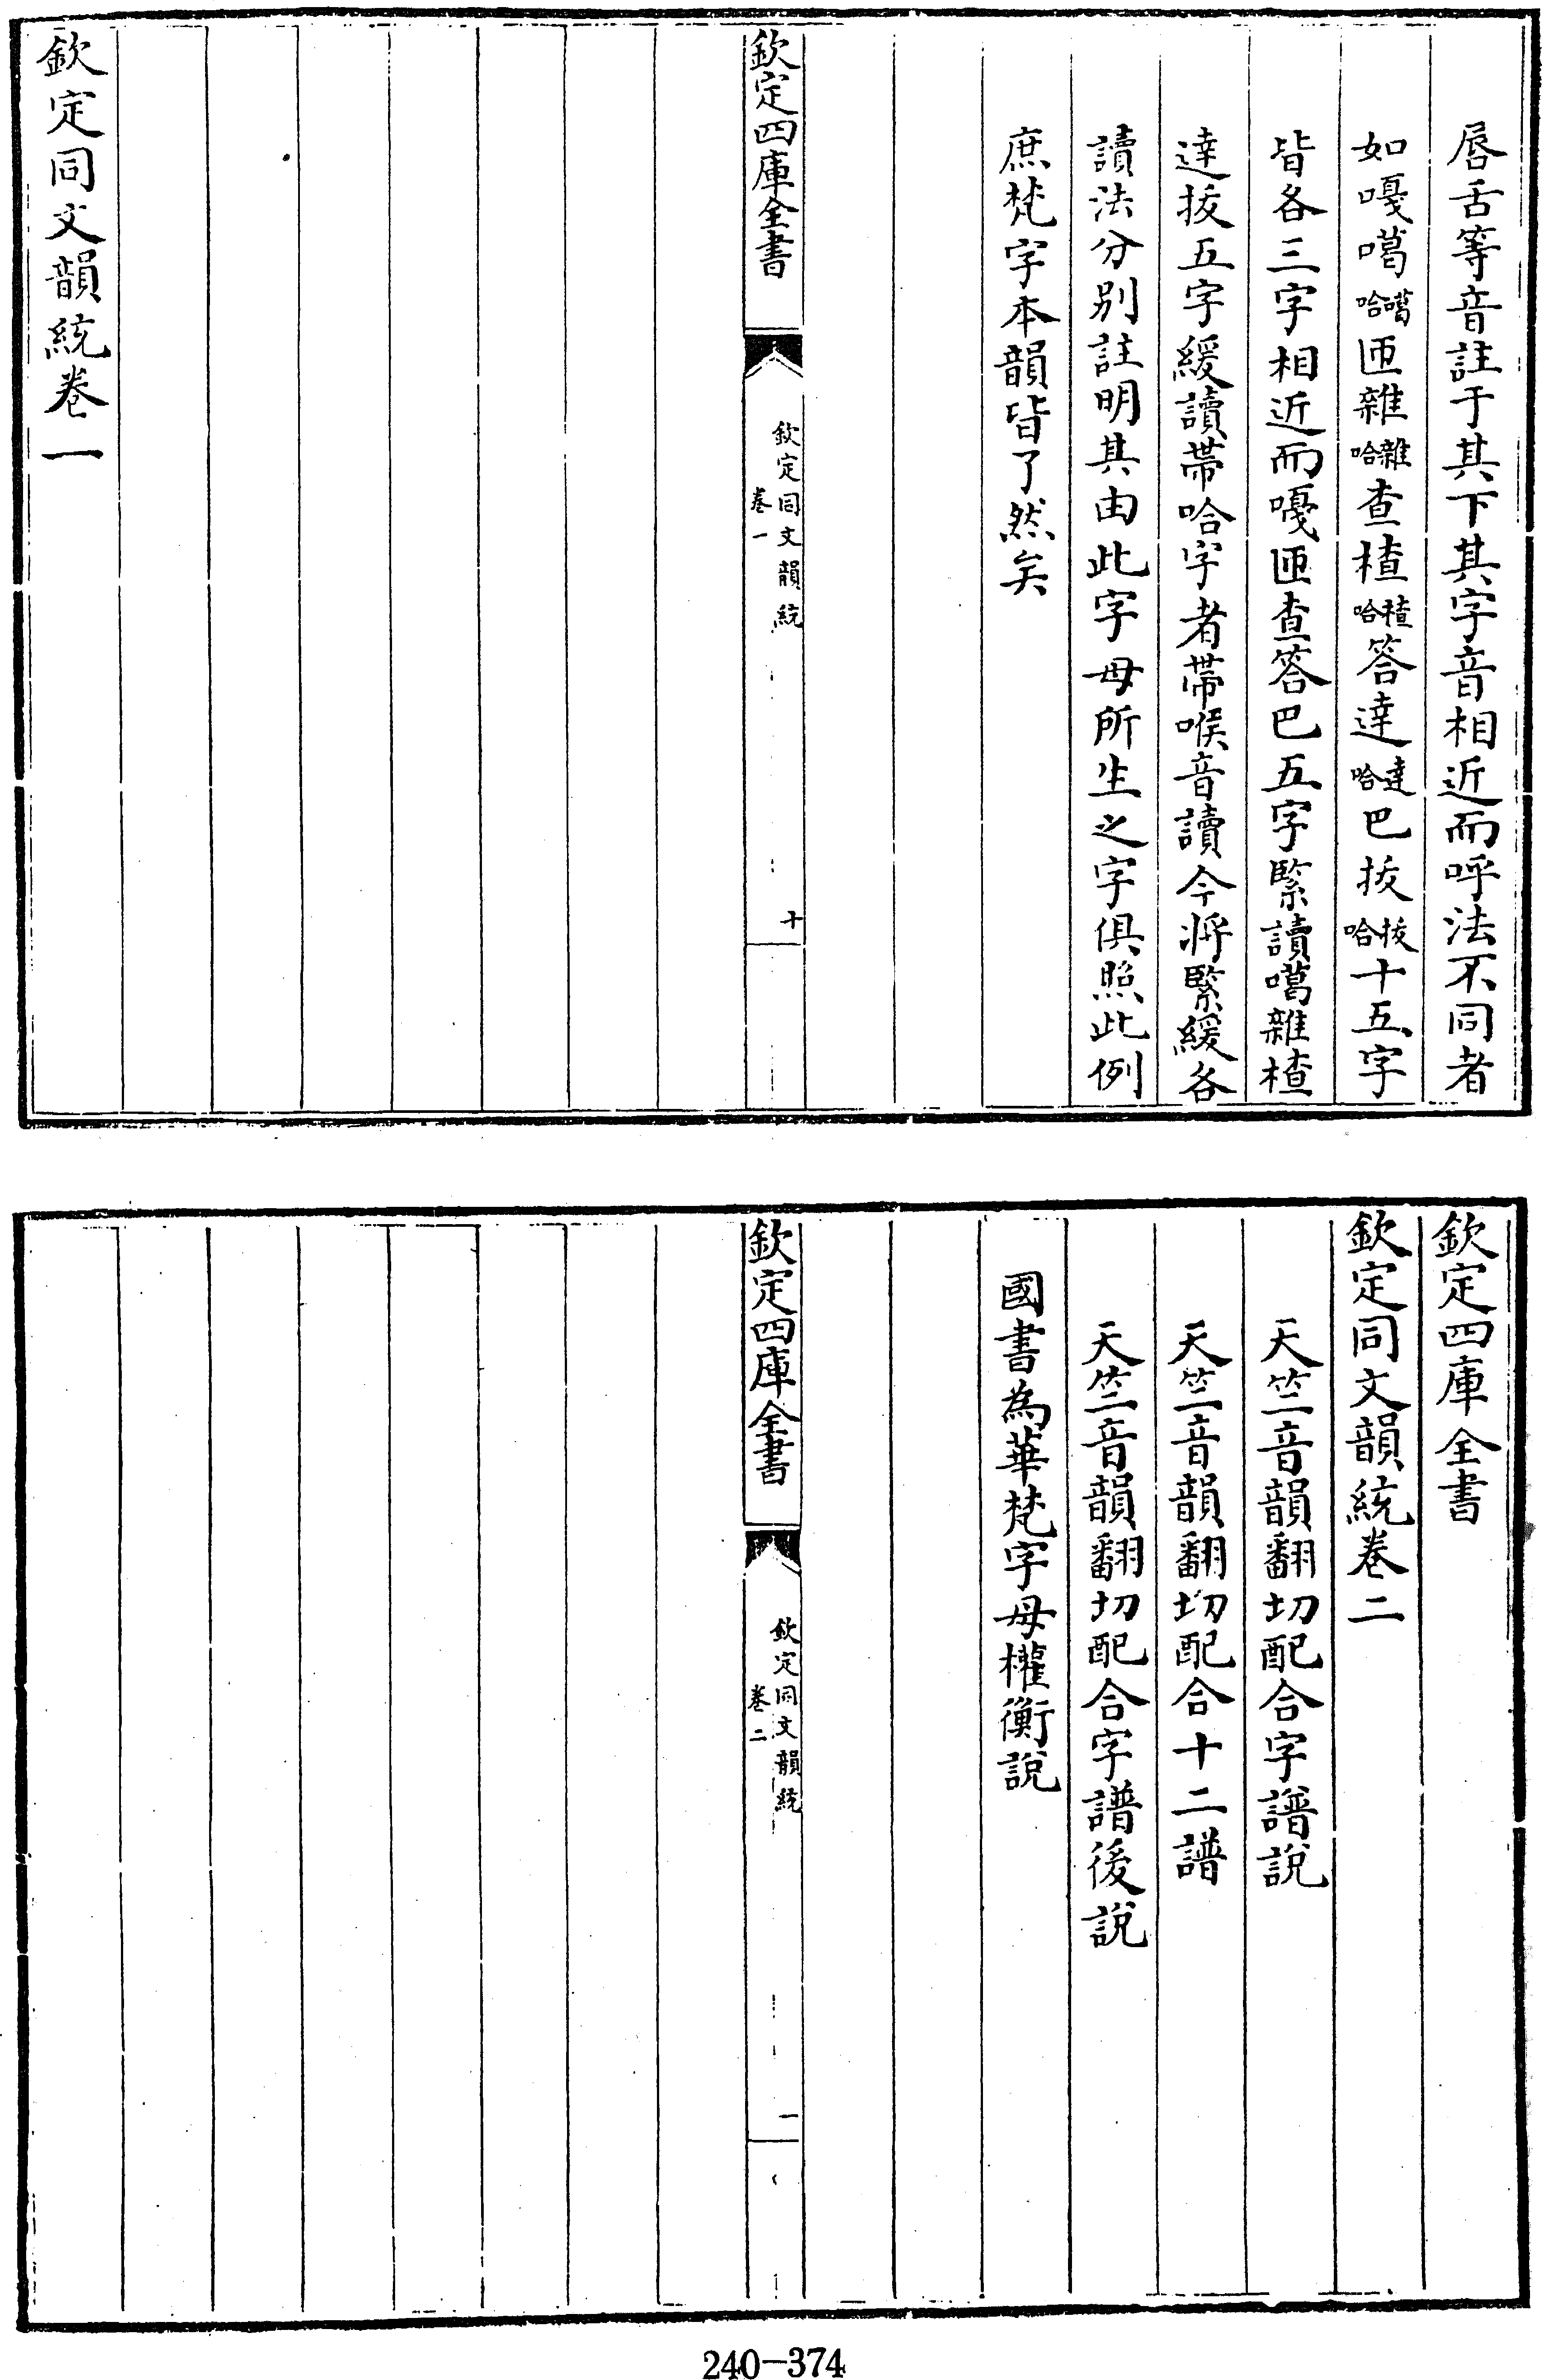 唇舌等音註于其下其字音相近而呼法不同者
如嘎噶噶哈匝雜雜哈查楂楂哈答達達哈巴拔拔哈十五字
皆各三字相近而嘎匝查答巴五字緊讀噶雜楂
達拔五字緩讀帶哈字者帶喉音讀今將緊緩各
讀法分別註明其由此字母所生之字俱照此例
庶梵字本韻皆了然矣
欽定四庫全書
欽定同文韻統
卷一
十
欽定同文韻統卷一
欽定四庫全書
欽定同文韻統卷二
天竺音韻翻切配合字譜說
天竺音韻翻切配合十二譜
天竺音韻翻切配合字譜後說
國書為華梵字母權衡說
欽定四庫全書
欽定同文韻統
卷二
一
240-374